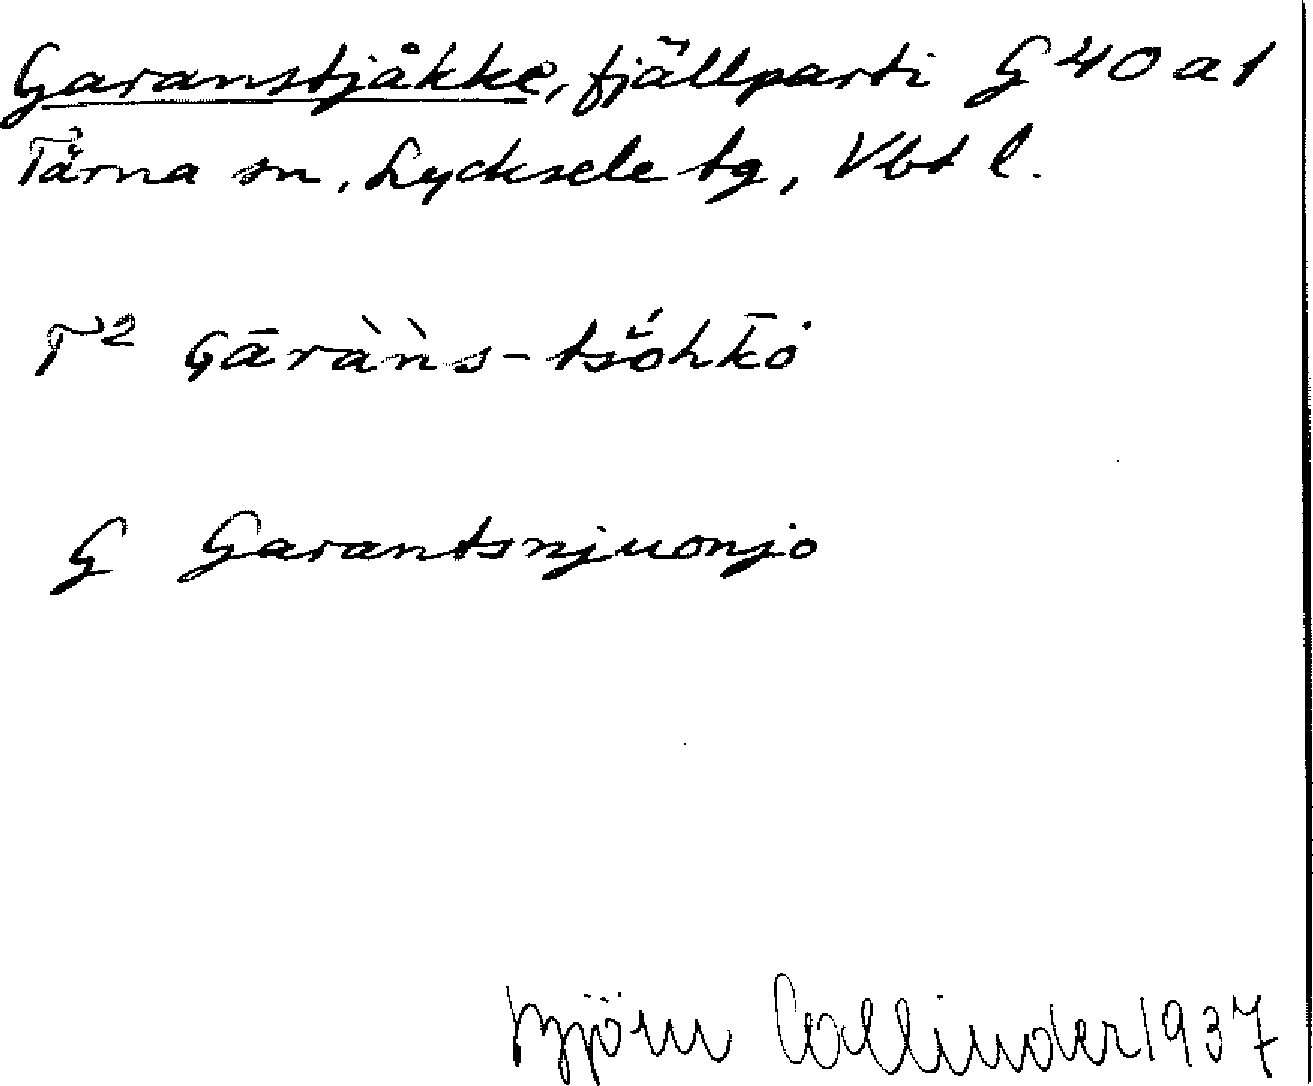 Garanstjåkke, fjällparti G 40 a 1
Tärna sn, Lycksele tg, Vbt l.
T² Gāràǹs-tsŏ́hk̄ȯ
G Garantsnjuonjo
Björn Collinder 1937